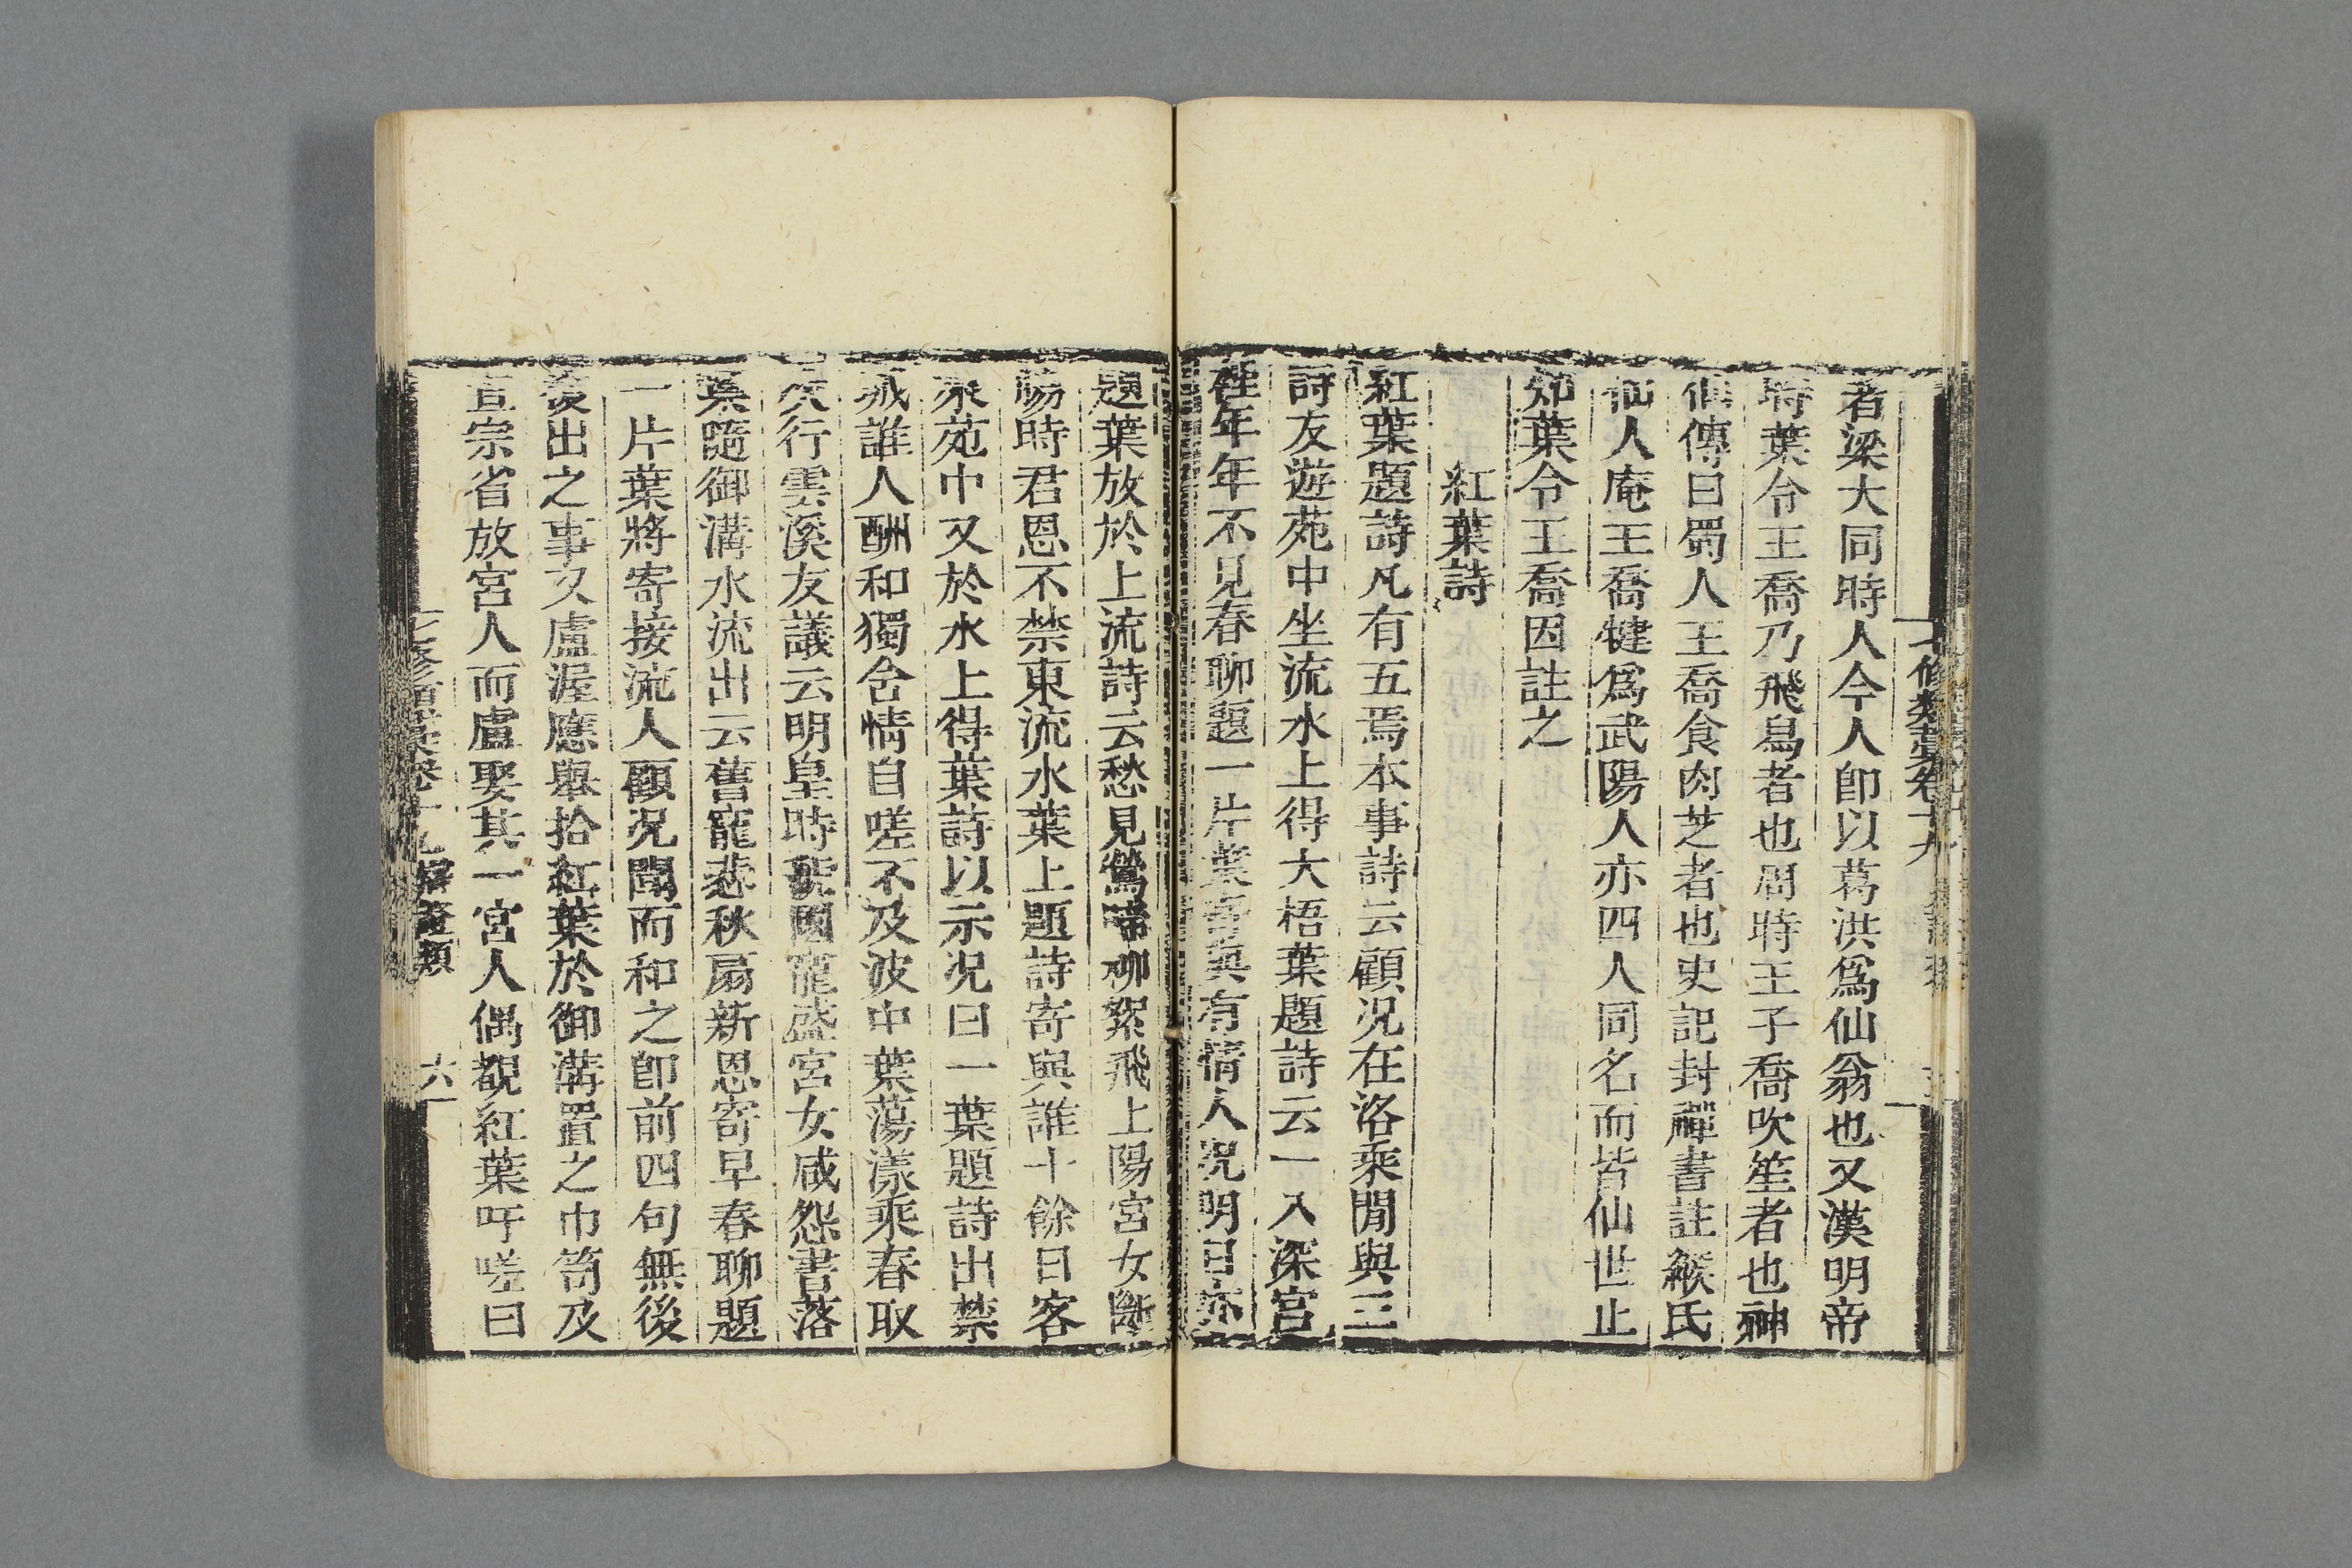 七修類藁卷十九
者梁大同時人今人卽以葛洪爲仙翁也又漢明帝
時葉令王喬乃飛舃者也周時王子喬吹笙者也神
僊傳曰蜀人王喬食肉芝者也史記封禪書註緱氏
仙人庵王喬犍爲武陽人亦四人同名而皆仙世止
知葉令王喬因註之
紅葉詩
紅葉題詩凡有五焉本事詩云顧况在洛乘閒與三
詩友遊苑中坐流水上得大梧葉題詩云一入深宮
裡年年不見春聊題一片葉寄與有情人况明日亦
題葉放於上流詩云愁見鶯啼柳絮飛上陽宮女斷
腸時君恩不禁東流水葉上題詩寄與誰十餘日客
來苑中又於水上得葉詩以示况曰一葉題詩出禁
城誰人酬和獨含情自嗟不及波中葉蕩漾乘春取
次行雲溪友議云明皇時虢國寵盛宮女咸怨書落
葉隨御溝水流出云舊寵悲秋扇新恩寄早春聊題
一片葉將寄接流人顧况聞而和之卽前四句無後
復出之事又盧渥應舉拾紅葉於御溝置之巾笥及
宣宗省放宮人而盧娶其一宮人偶覩紅葉吁嗟曰
七修類藁卷十九 辯證類 六